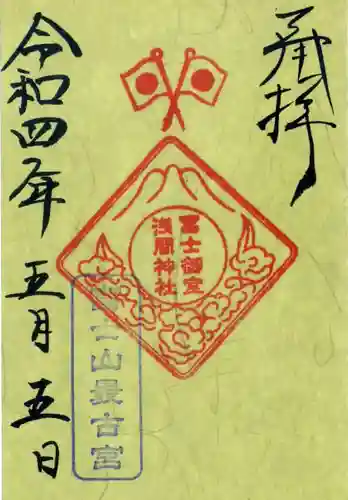 奉拝
冨士御室
浅間神社
冨士山最古宮
令和四年五月五日